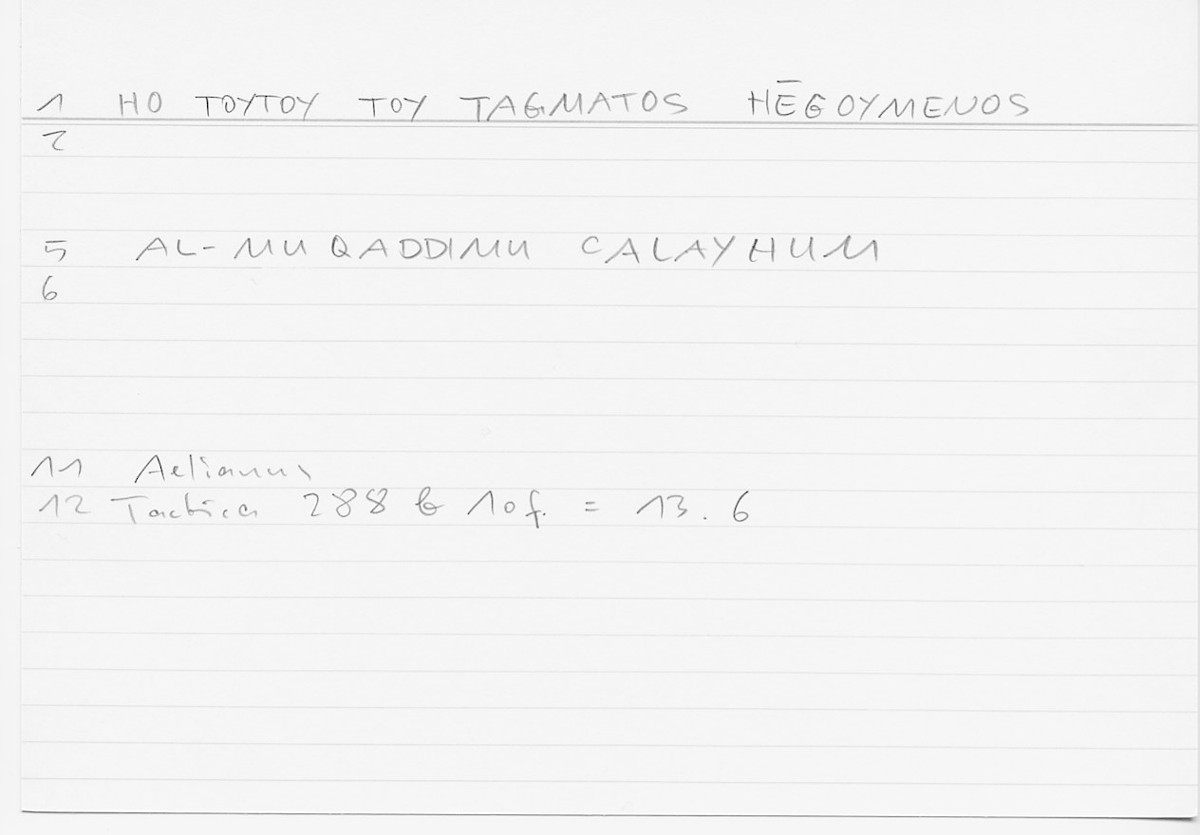 1 HO TOYTOY TOY TAGMATOS HĒGOYMENOS
2
5 AL-MUQADDIMU CALAYHUM
6
11 Aelianus
12 Tactica 288 b 10 f. = 13.6